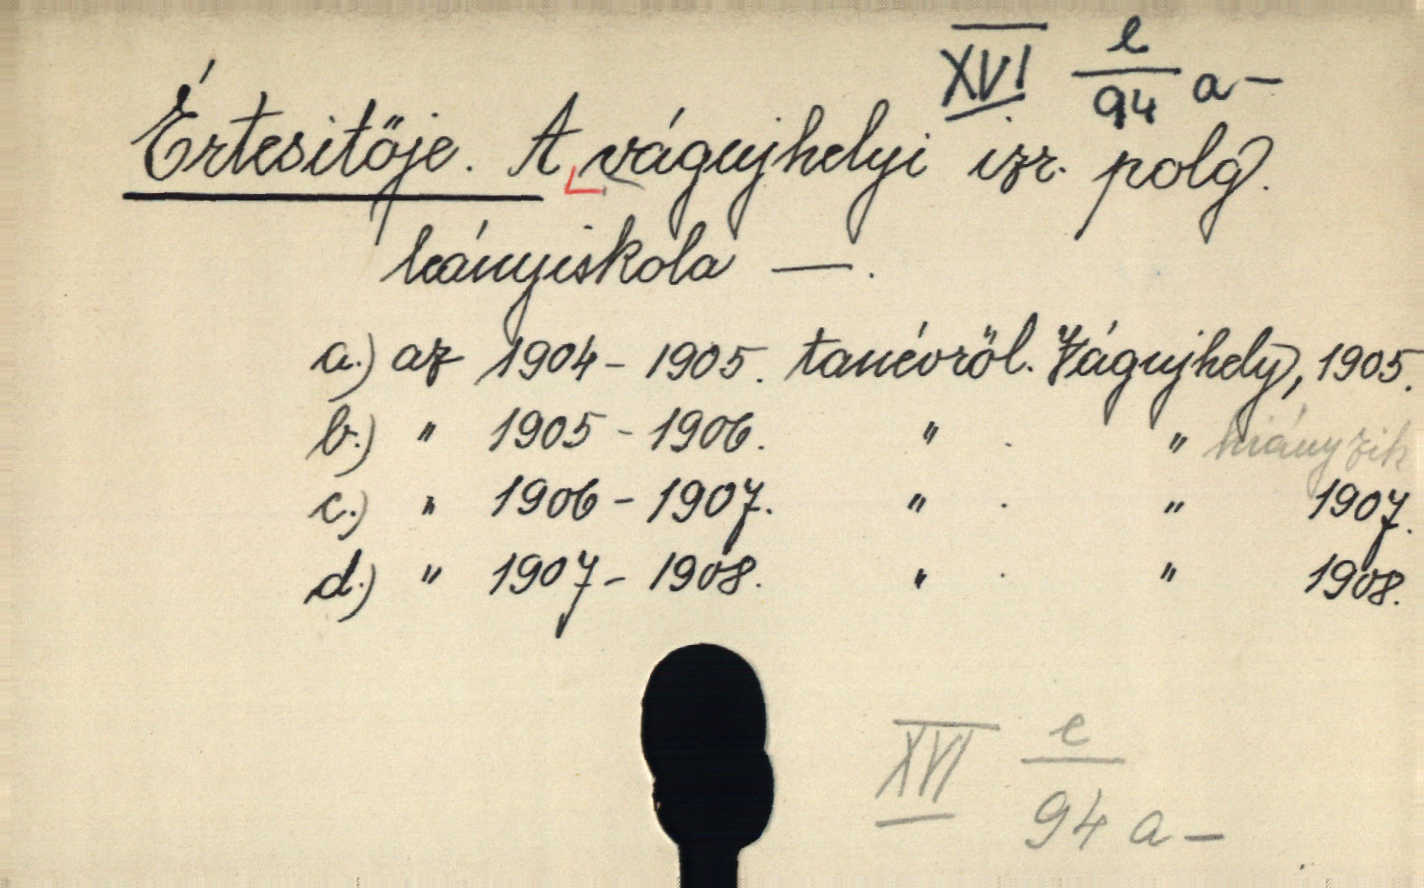 XVI e/94 a-
Értesitője. A vágujhelyi izr. polg.
leányiskola —.
a.) az 1904-1905. tanévről. Vágujhely, 1905.
b.) " 1905-1906. " . " hiányzik
c.) " 1906-1907. " . " 1907.
d.) " 1907-1908. " . " 1908.
XVI e/94 a-